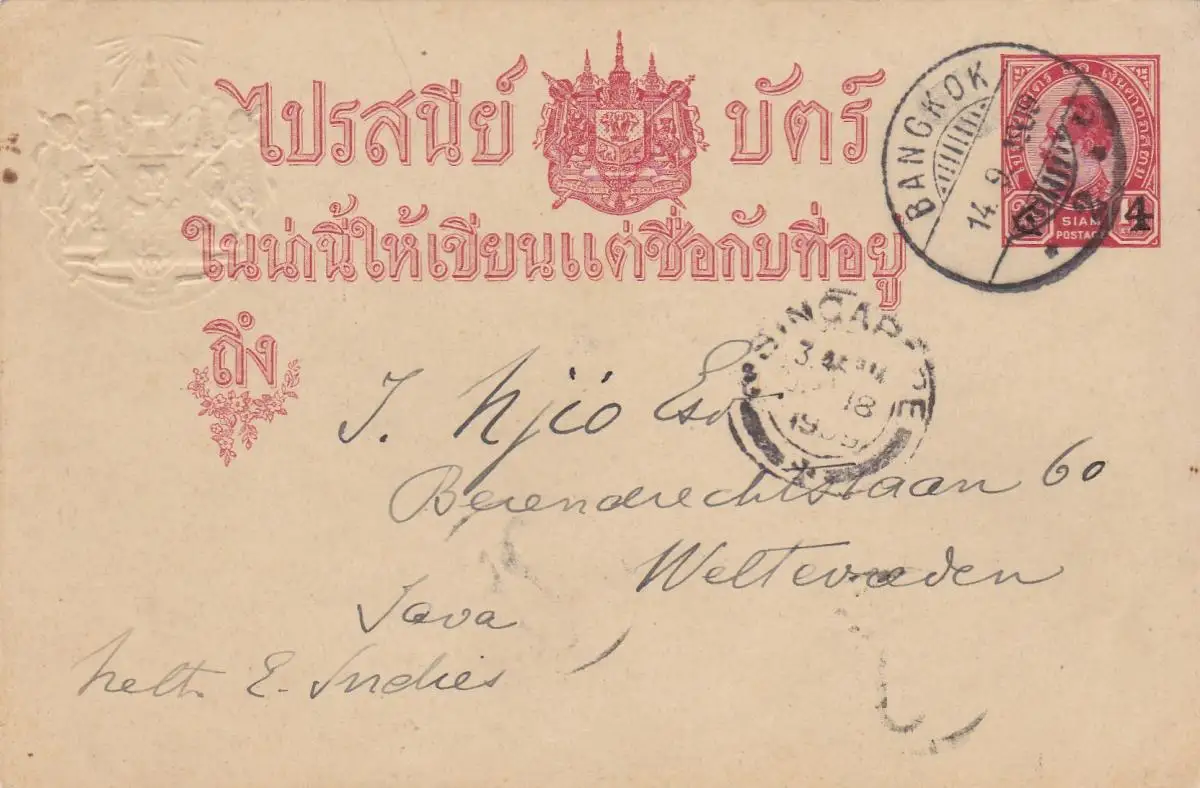 ไปรสนีย์ บัตร์
ในน่านี้ให้เขียนแต่ชื่อกับที่อยู่
ถึง
BANGKOK
14. 9
SIAM
POSTAGE
4
SINGAPORE
18
J. Njio Esq
Berendrechtslaan 60
Weltevreden
Java
Neth. E. Indies